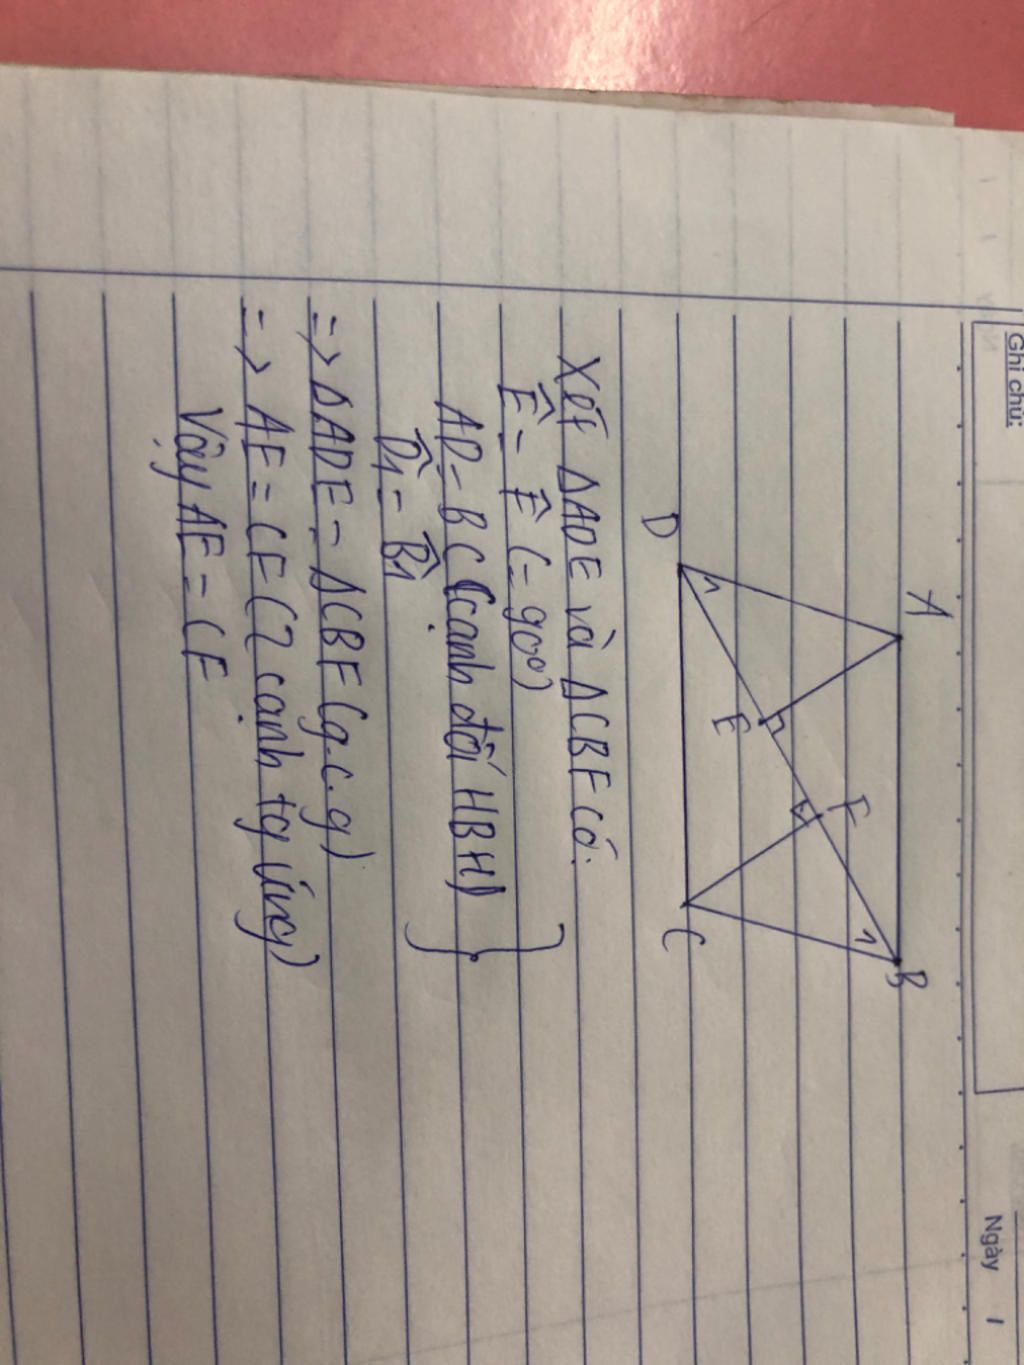 Ghi chú:
Ngày
A
B
F
E
D
C
1
1
Xét ΔADE và ΔCBF có:
Ê = Ê (= 90°)
AD = BC (cạnh đối HBH)
D̂1 = B̂1
=> ΔADE = ΔCBF (g.c.g)
=> AE = CF (2 cạnh tg ứng)
Vậy AE = CF